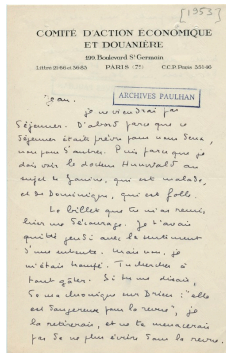 [1953]
COMITÉ D'ACTION ÉCONOMIQUE
ET DOUANIÈRE
Boulevard St Germain
PARIS (7e)
ARCHIVES PAULHAN
Jean,
je ne viendrai pas
déjeuner. D'abord parce que ce
déjeuner était prévu pour nous deux,
non pour d'autres. Puis parce que je
dois voir le docteur au
sujet de Janine, qui est malade,
et de Dominique, qui est folle.
Le billet que tu m'as remis
hier me décourage. Je t'avais
quitté jeudi avec le sentiment
d'une entente. Mais non, je
m'étais trompé. Tu cherches à
tout gâter. Si tu me disais,
de ma chronique sur Drieu : "elle
est dangereuse pour la revue", je
la retirerais, et ne te menacerais
pas de ne plus écrire dans la revue.